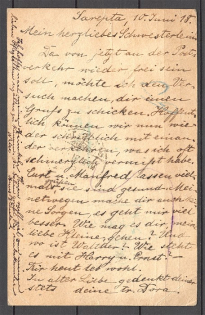 Sarepta, 10. Juni 18.
Mein herzliebes Schwesterlein!
Da von jetzt an der Post-
verkehr wieder frei sein
soll, möchte ich den Ver-
such machen, dir einen
Gruß zu schicken. Hoffent-
lich können wir nun wie-
der schriftlich mit einan-
der verkehren, was ich oft
schmerzlich vermißt habe.
Curt u. Manfred lassen viel-
mals, sie sind gesund. Mei-
netwegen mache dir auch
keine Sorgen, es geht mir viel
besser. Wie mag es dir,
liebe Kleine, gehen? Und
wo ist Walther? Wie steht
es mit Harry u. Ernst?
Für heut leb wohl.
In alter Liebe gedenkt deiner
stets deine tr. Dora.